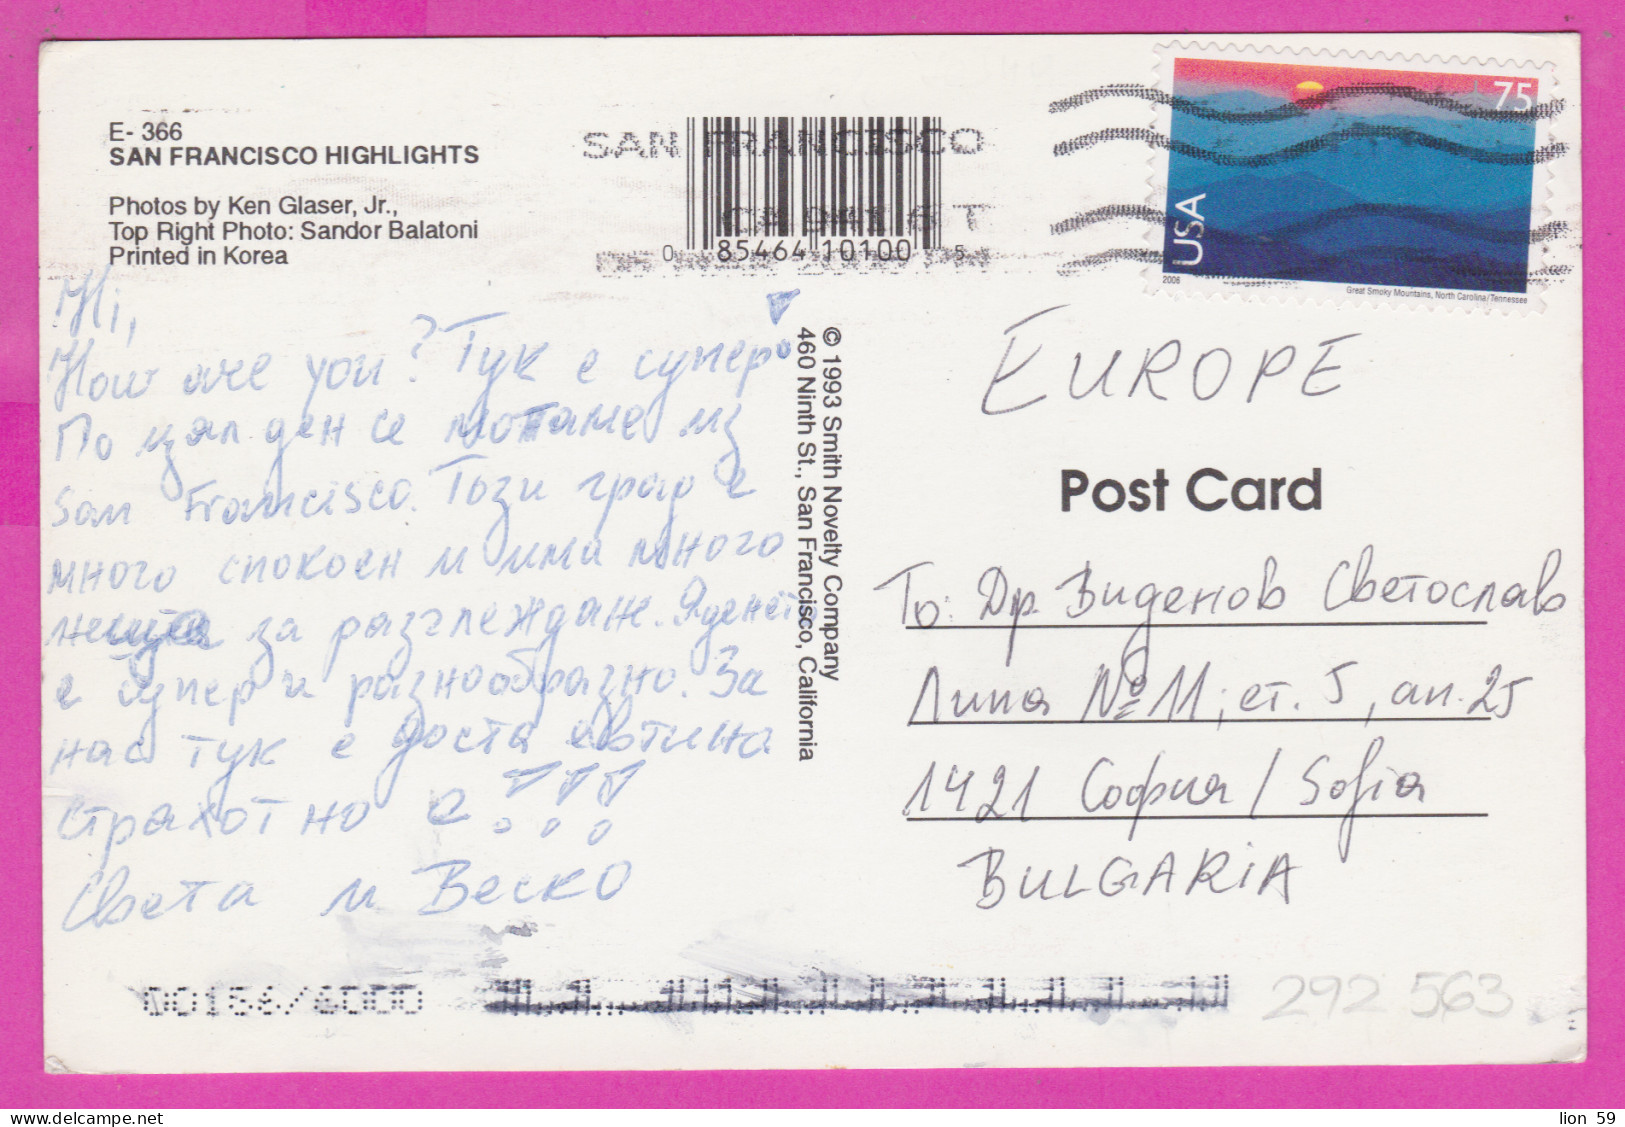 E- 366
SAN FRANCISCO HIGHLIGHTS
Photos by Ken Glaser, Jr.,
Top Right Photo: Sandor Balatoni
Printed in Korea
SAN FRANCISCO
CA 941
0 85464 10100 5
75
USA
2006
Great Smoky Mountains, North Carolina/Tennessee
Hi,
How are you? Тук е супер!
По цял ден се мотаме из
San Francisco. Този град е
много спокоен и има много
неща за разглеждане. Яденето
е супер и разнообразно. За
нас тук е доста евтино
Страхотно е!!!
Света и Веско
© 1993 Smith Novelty Company
460 Ninth St., San Francisco, California
EUROPE
Post Card
To: Др. Виденов Светослав
Липа №11, ет. 5, ап. 25
1421 София / Sofia
BULGARIA
292 563
delcampe.net
lion 59